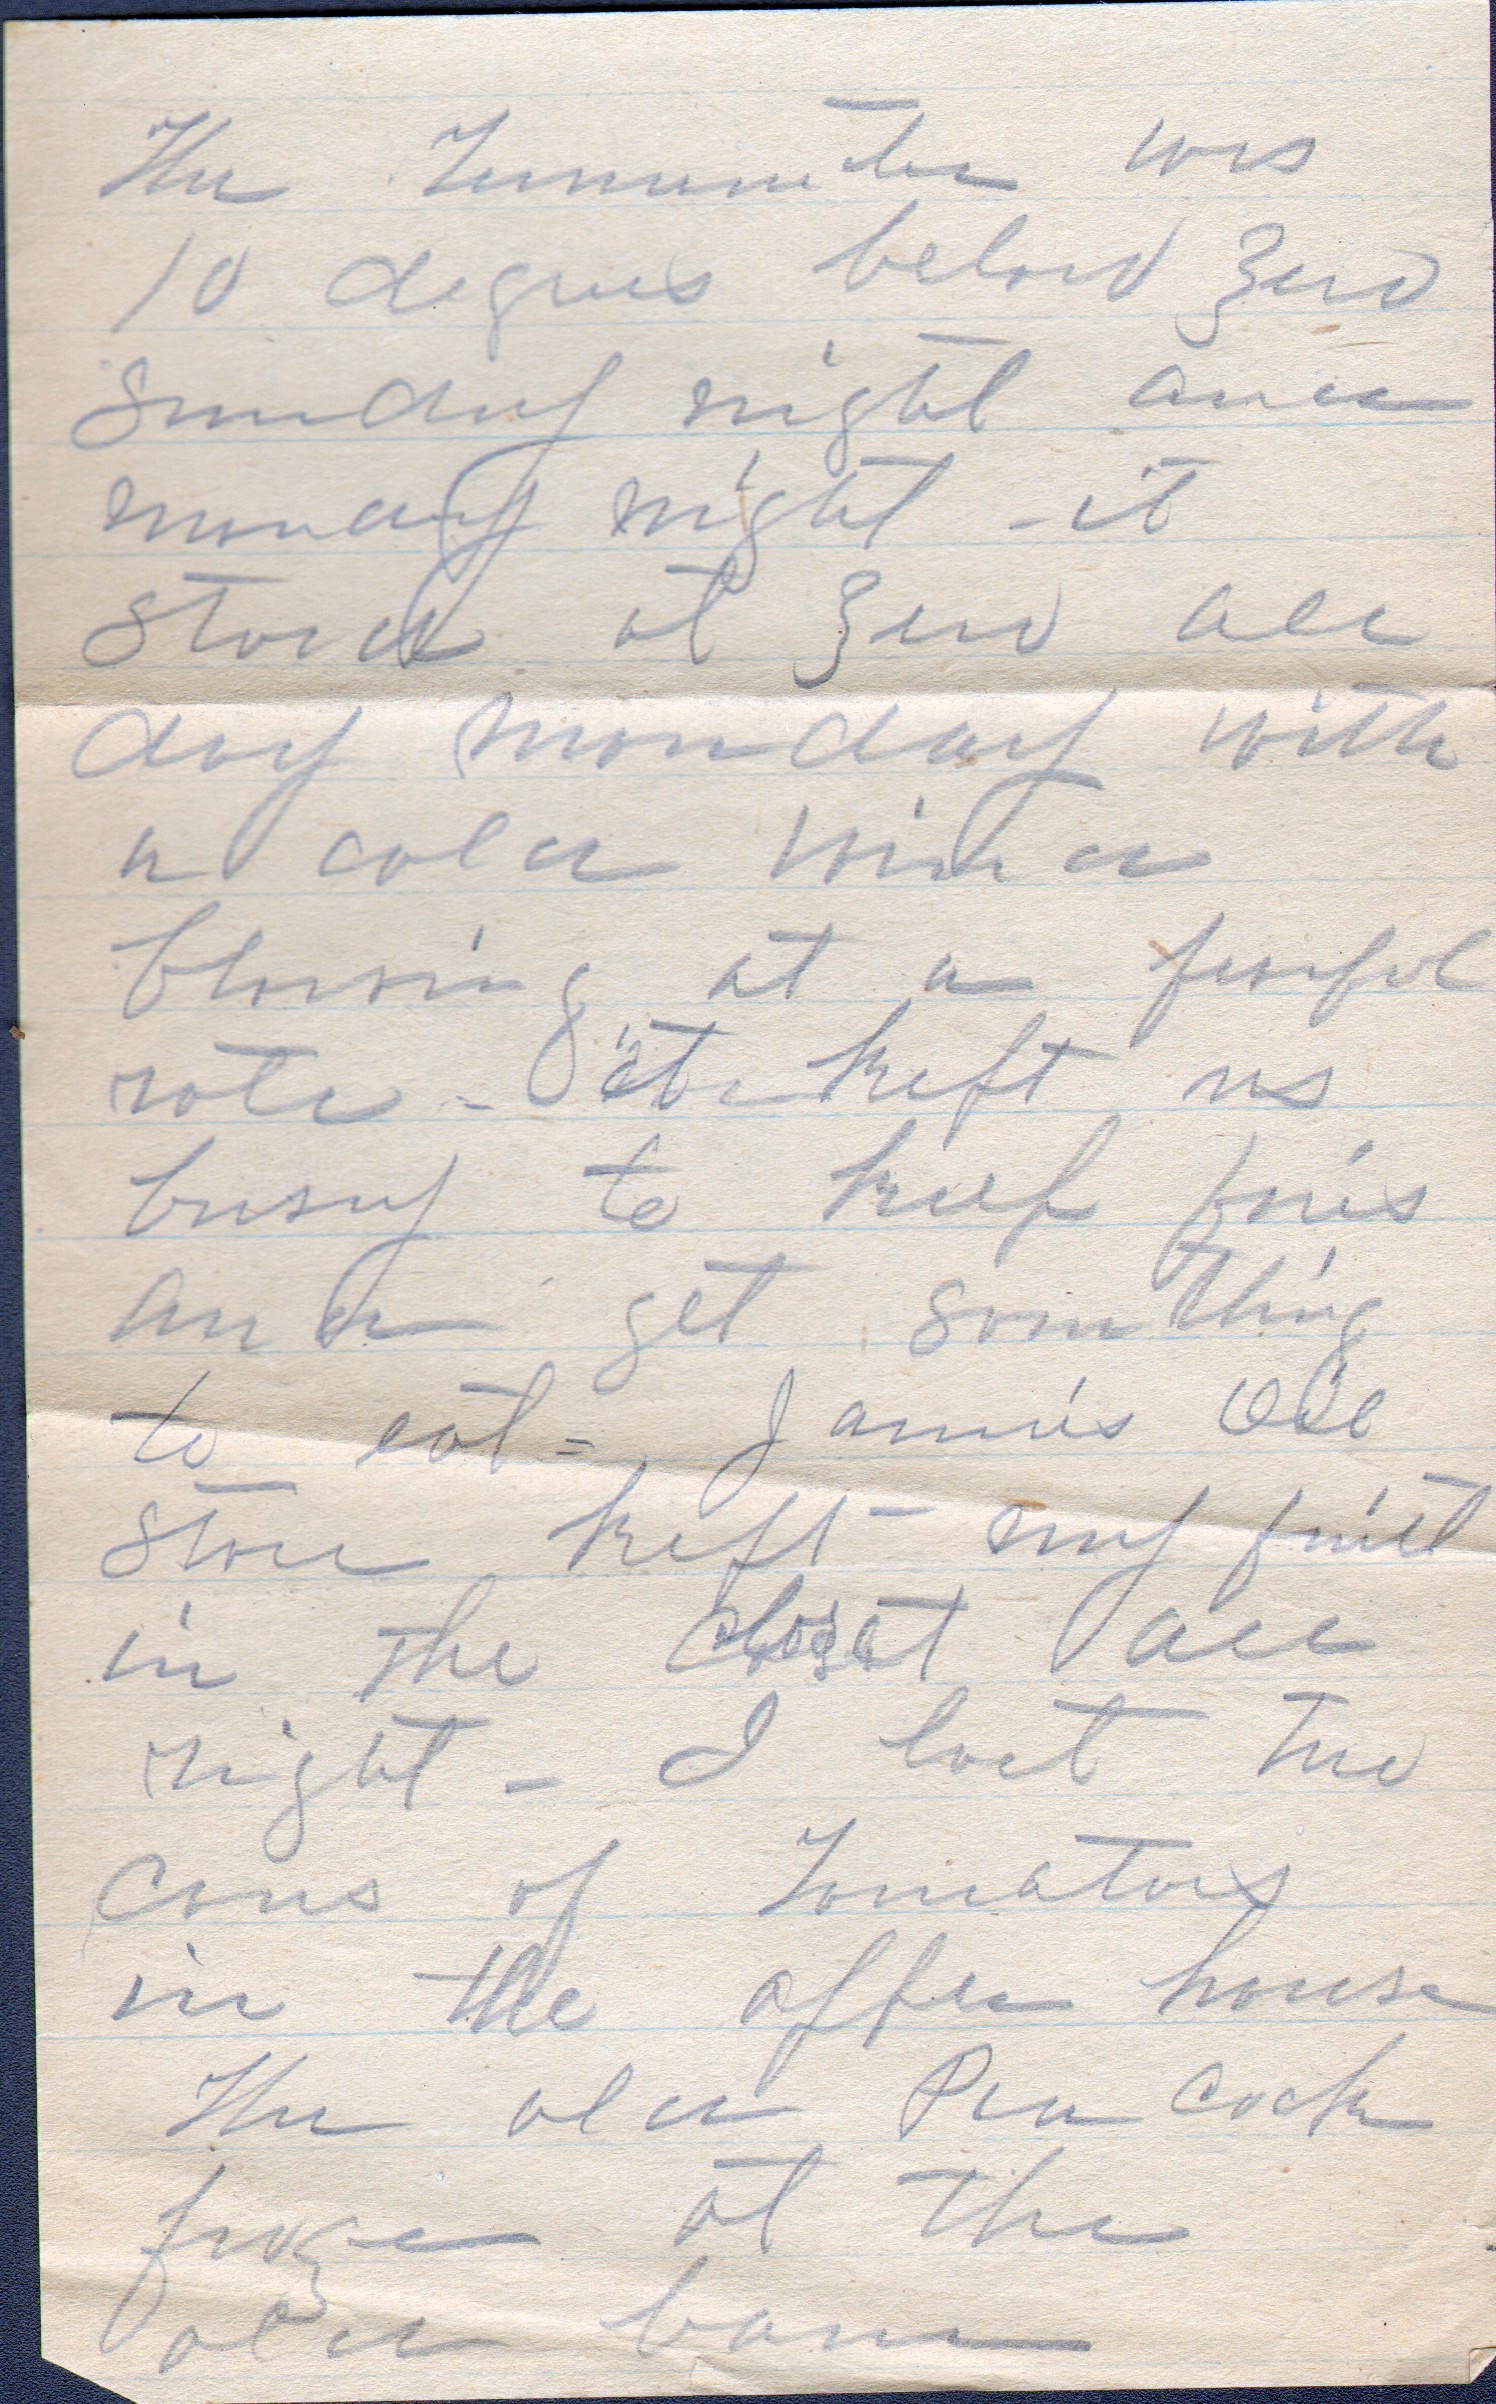 The Termometer was
10 degrees below Zero
Sunday night and
monday night - it
stood at Zero all
day monday with
a cold wind
blowing at a fearful
rate - it kept us
busy to keep fires
and get something
to eat - Jamies Oil
stove kept my fruit
in the closet all
right - I lost two
cans of Tomatoes
in the offen house
The old Pea cock
froze at the
old barn